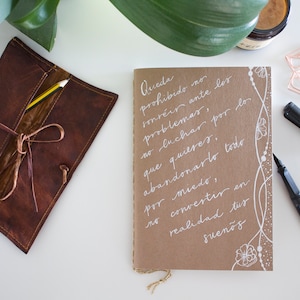 Queda
prohibido no
sonreír ante los
problemas,
no luchar por lo
que quieres,
abandonarlo todo
por miedo,
no convertir en
realidad tus
sueños